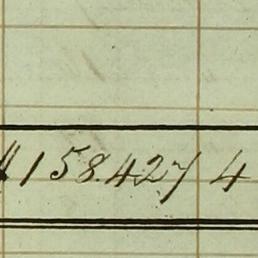 158.427 4